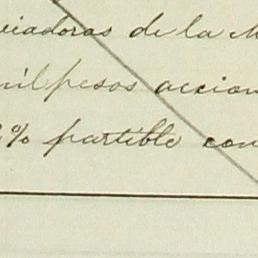 viadoras de la M
mil pesos accion
% partible con